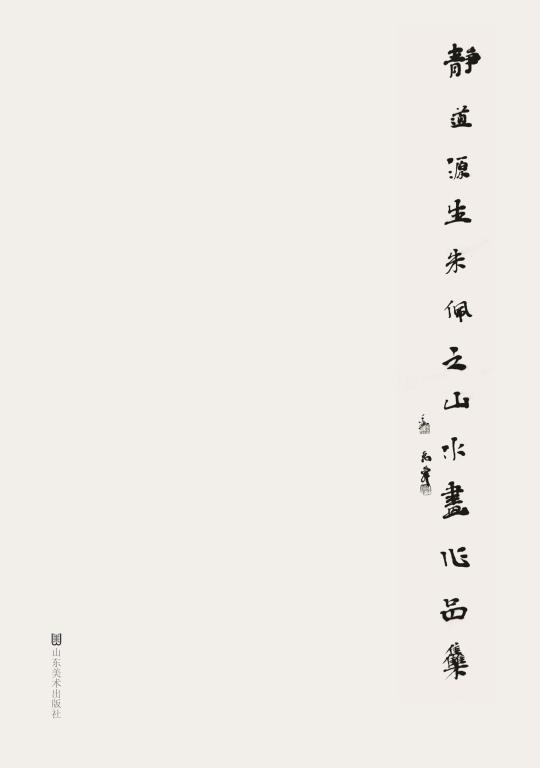 静道源生朱佩之山水畫作品集
山东美术出版社